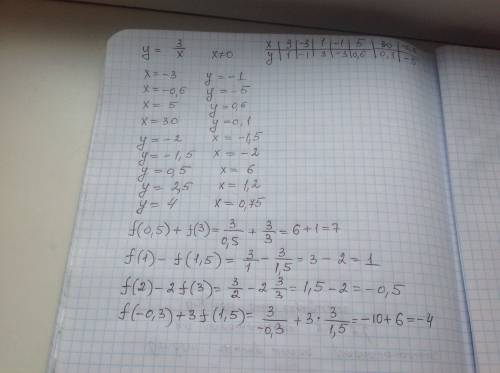 y = 3/x x≠0
x | 3 | -3 | 1 | -1 | 5 | 30
y | 1 | -1 | 3 | -3 | 0,6 | 0,1 | -5
x=-3 y=-1
x=-0,6 y=-5
x=5 y=0,6
x=30 y=0,1
y=-2 x=-1,5
y=-1,5 x=-2
y=0,5 x=6
y=2,5 x=1,2
y=4 x=0,75
f(0,5)+f(3)= 3/0,5 + 3/3 = 6+1=7
f(1)-f(1,5)= 3/1 - 3/1,5 = 3-2=1
f(2)-2f(3)= 3/2 - 2 3/3 = 1,5-2=-0,5
f(-0,3)+3f(1,5)= 3/-0,3 + 3· 3/1,5 =-10+6=-4